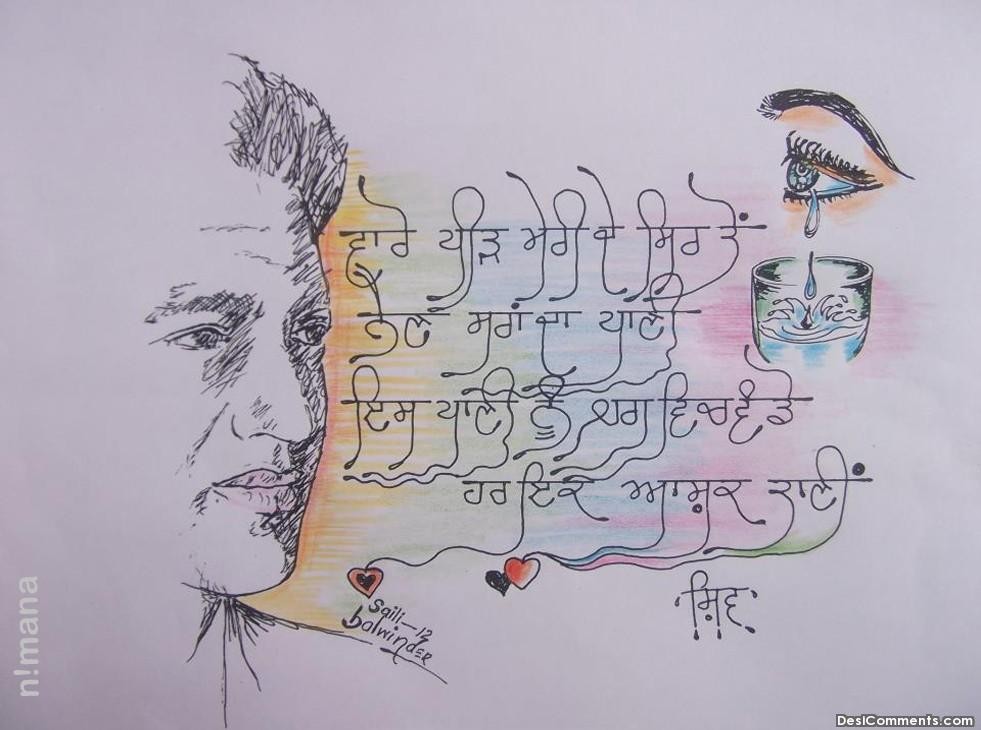 ਵਾਰੇ ਪੀੜ ਮੇਰੀ ਦੇ ਸਿਰ ਤੋਂ
ਨੈਣ ਸਰਾਂ ਦਾ ਪਾਣੀ
ਇਸ ਪਾਣੀ ਨੂੰ ਜਗ ਵਿਚ ਵੰਡੇ
ਹਰ ਇਕ ਆਸ਼ਕ ਤਾਣੀਂ
'ਸ਼ਿਵ'
Saili-12
balwinder
n!mana
DesiComments.com